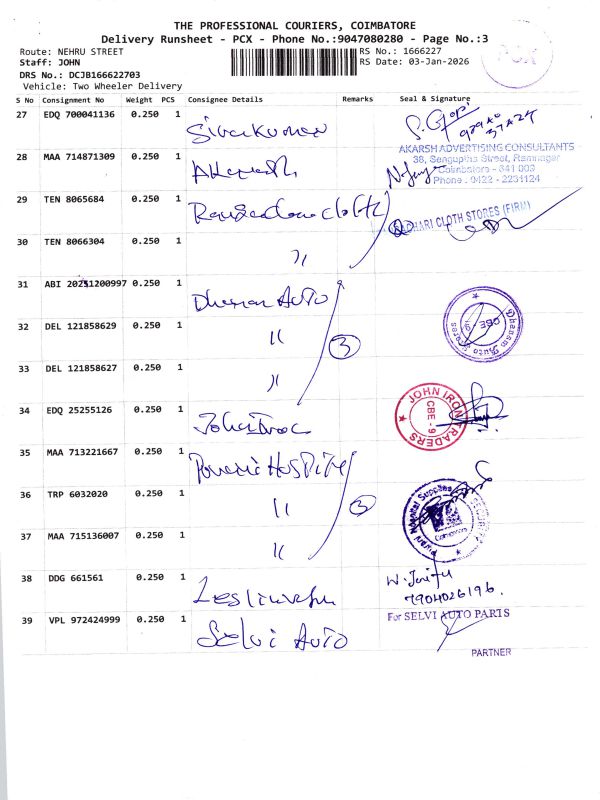 THE PROFESSIONAL COURIERS, COIMBATORE
Delivery Runsheet - PCX - Phone No.:9047080280 - Page No.:3
Route: NEHRU STREET
RS No.: 1666227
Staff: JOHN
RS Date: 03-Jan-2026
DRS No.: DCJB166622703
Vehicle: Two Wheeler Delivery
PCX
S No Consignment No Weight PCS Consignee Details Remarks Seal & Signature
27 EDQ 700041136 0.250 1 Sivakumar
28 MAA 714871309 0.250 1 Akarsh
AKARSH ADVERTISING CONSULTANTS
38, Sengupta Street, Ramnagar
Coimbatore - 641 009
Phone : 0422 - 2231124
29 TEN 8065684 0.250 1
CLOTH STORES (FIRM)
30 TEN 8066304 0.250 1 "
31 ABI 20251200997 0.250 1 Dhanam Auto
Dhanam Auto Stores
CBE - 9
32 DEL 121858629 0.250 1 "
3
33 DEL 121858627 0.250 1 "
34 EDQ 25255126 0.250 1 John Iron
JOHN IRON TRADERS
CBE - 9
35 MAA 713221667 0.250 1
36 TRP 6032020 0.250 1 "
3
Hospital Supplies
Coimbatore
37 MAA 715136007 0.250 1 "
38 DDG 661561 0.250 1
7904026196
39 VPL 972424999 0.250 1 Selvi Auto
For SELVI AUTO PARTS
PARTNER